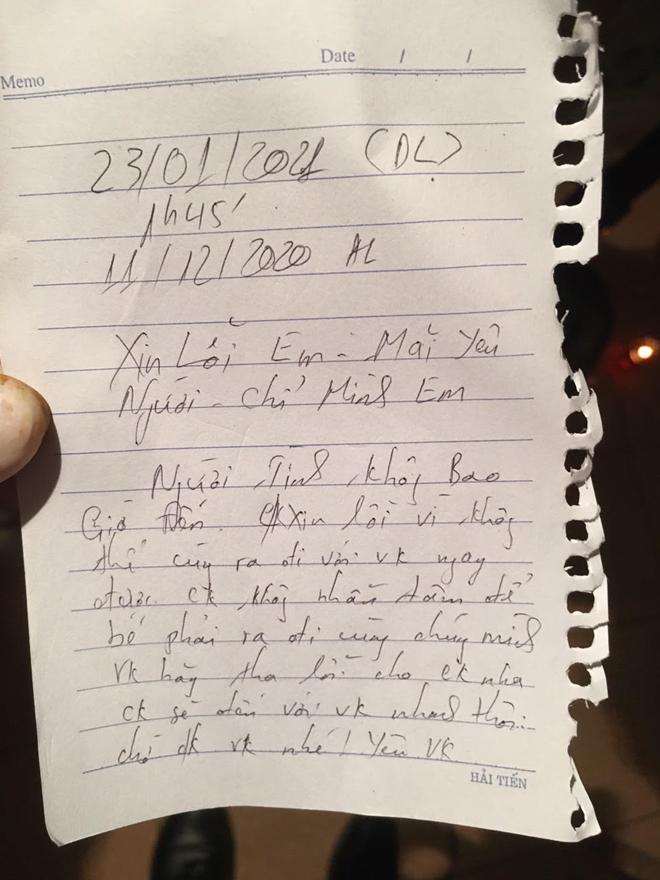 Memo
Date / /
23/01/2021 (DL)
1h45'
11/12/2020 AL
Xin Lỗi Em - Mãi Yêu
Người - Chỉ Mình Em
Người Tình Không Bao
Giờ Đến. CK Xin lỗi vì không
thể cùng ra đi với vk ngay
được. ck không nhẫn tâm để
bé phải ra đi cùng chúng mình
VK hãy tha lỗi cho ck nha
ck sẽ đến với vk nhanh thôi.
chờ ck vk nhé! Yêu VK
HẢI TIẾN